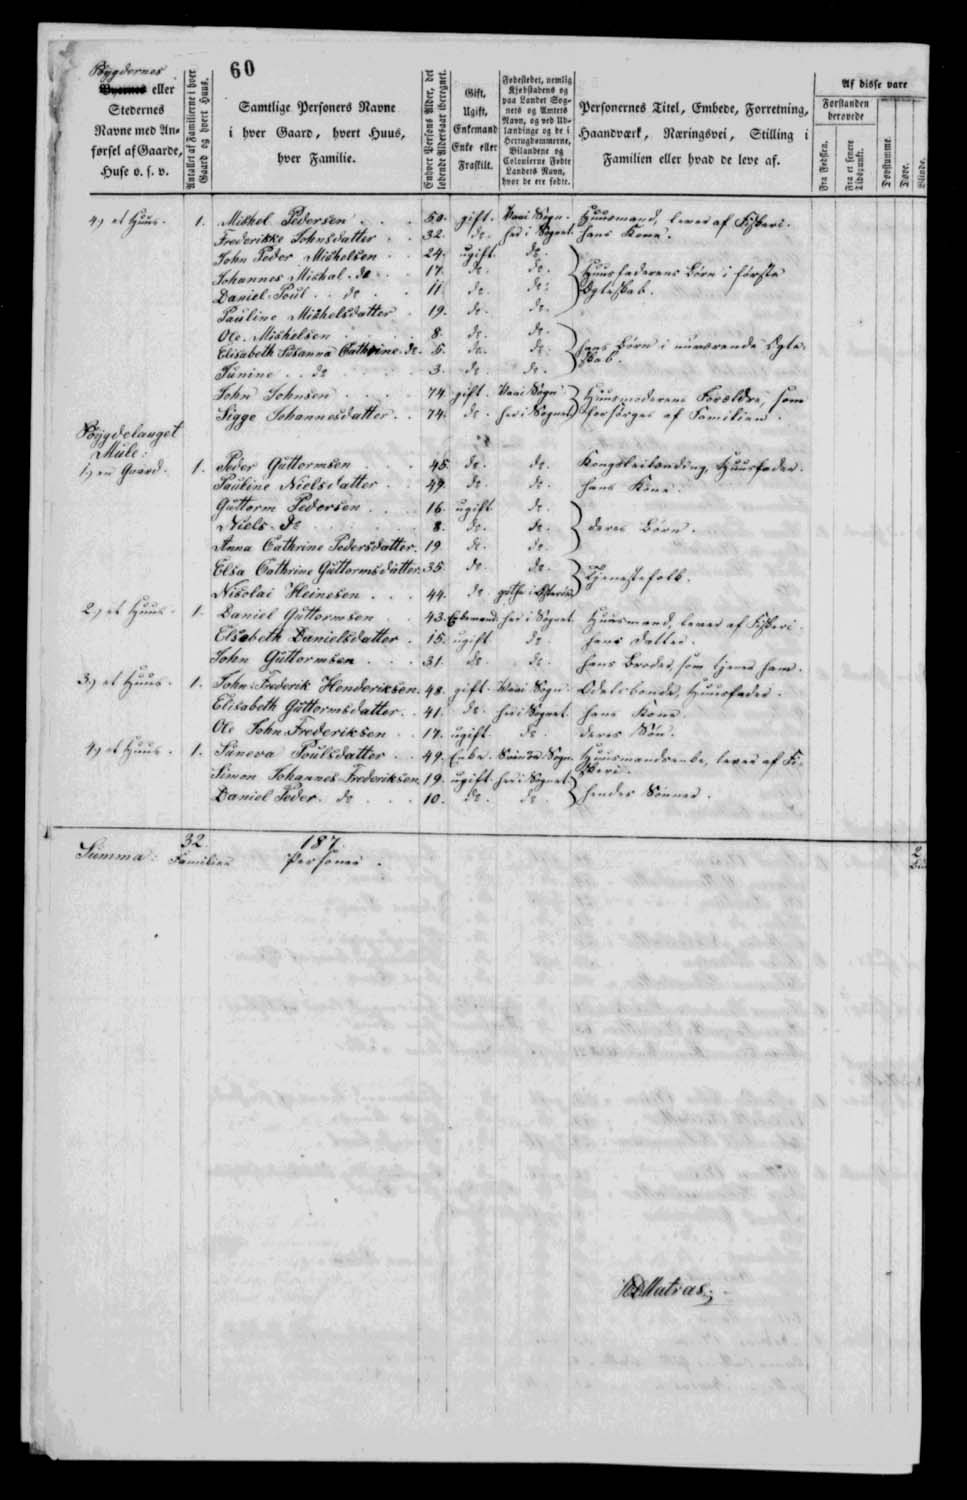 60
Bygdernes
Byernes eller
Stedernes
Navne med An-
førsel af Gaarde,
Huse o. s. v.
Antallet af Familierne i hver
Gaard og hvert Huus.
Samtlige Personers Navne
i hver Gaard, hvert Huus,
hver Familie.
Enhver Persons Alder, det
løbende Aldersaar iberegnet.
Gift,
Ugift,
Enkemand
Enke eller
Fraskilt.
Fødestedet, nemlig
Kjøbstadens og
paa Landet Sog-
nets og Amtets
Navn, og ved Ud-
lændinge og de i
Hertugdømmerne,
Bilandene og
Colonierne Fødte
Landets Navn,
hvor de ere fødte.
Personernes Titel, Embede, Forretning,
Haandværk, Næringsvei, Stilling i
Familien eller hvad de leve af.
Af disse vare
Forstanden
berøvede
Fra Fødslen.
Fra et senere
Tidspunkt.
Døvstumme.
Døve.
Blinde.
4, et Huus. 1. Mishel Pedersen 50. gift. Sogn. Huusmand, lever af Fiskeri.
Frederikke Johnsdatter 32. do. her i Sognet. hans Kone.
John Peder Mishelsen 24. ugift. do.
Johannes Mishal. do 17. do. do. Huusfaderens Børn i første
Daniel Poul do 11. do. do. Ægteskab.
Pauline Mishelsdatter 19. do. do.
Ole Mishelsen 8. do. do.
Elisabeth Susanna Cathrine do. 5. do. do. hans Børn i nuværende Ægte-
skab.
Junine do 3. do. do.
John Johnsen 74. gift. Sogn. Huusmoderens Forældre, som
Sigge Johannesdatter 74. do. her i Sognet. forsørges af Familien.
Bygdelauget
Mule:
1, en Gaard. 1. Peder Guttormsen 45. do. do. Huusfader.
Pauline Nielsdatter 49. do. do. hans Kone.
Guttorm Pedersen 16. ugift. do.
Niels do 8. do. do. deres Børn.
Anna Cathrine Pedersdatter. 19. do. do.
Elsa Cathrine Guttormsdatter. 35. do. do. Tjenestefolk.
Nikolai Heinesen 44. do.
2, et Huus. 1. Daniel Guttormsen 43. Enkemand. her i Sognet. Huusmand, lever af Fiskeri.
Elsebeth Danielsdatter 15. ugift. do. hans Datter.
John Guttormsen 31. do. do. hans Broder, som tjener ham.
3, et Huus. 1. John Frederik Henderiksen. 48. gift. Sogn. Odelsbonde, Huusfader.
Elisabeth Guttormsdatter. 41. do. her i Sognet. hans Kone.
Ole John Frederiksen 17. ugift. do. deres Søn.
4, et Huus. 1. Suneva Poulsdatter 49. Enke. Sogn. Huusmandsenke, lever af Fi-
skeri.
Simon Johannes Frederiksen. 19. ugift. her i Sognet.
Daniel Peder do 10. do. do. hendes Sønner.
Summa: 32 Familier 187 Personer.
2
Matras